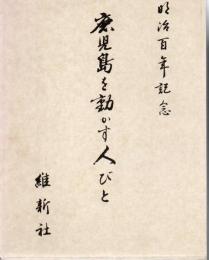 明治百年記念
鹿児島を動かす人びと
維新社